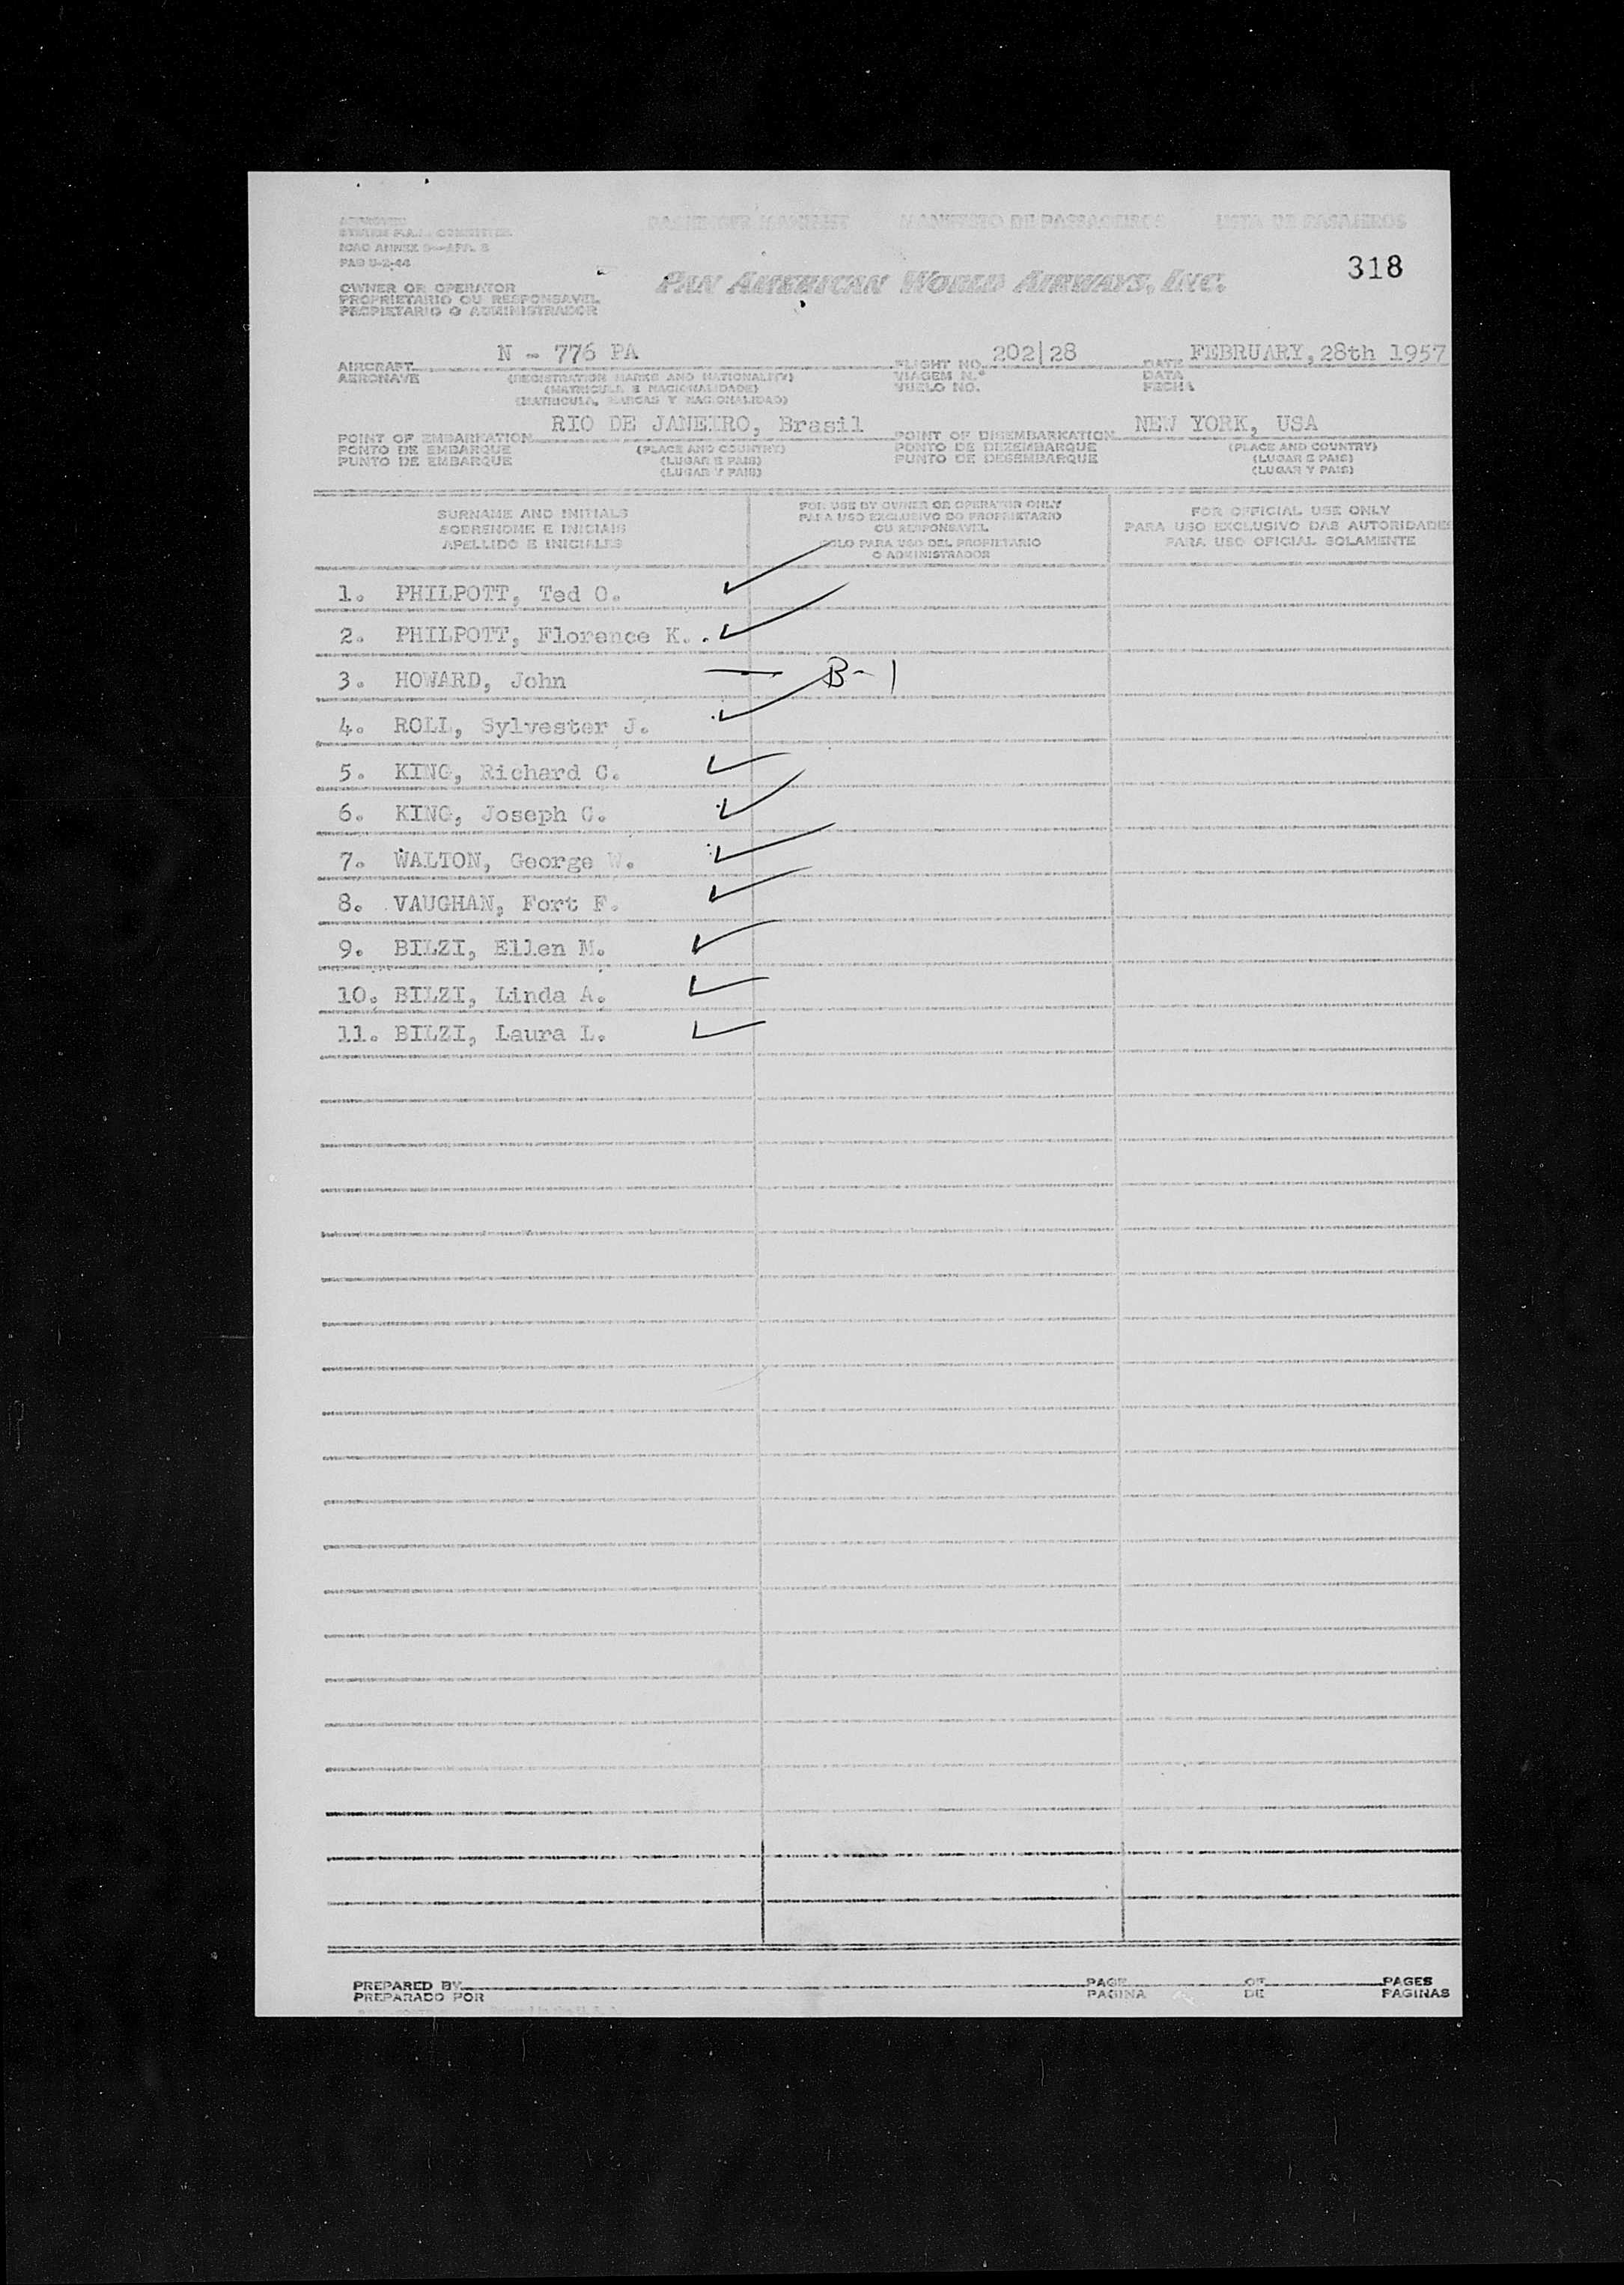 PASSENGER MANIFEST MANIFESTO DE PASSAGEIROS LISTA DE PASAJEROS
ICAO ANNEX 9—APP. 
318
PAN AMERICAN WORLD AIRWAYS, INC.
OWNER OR OPERATOR
PROPRIETARIO OU RESPONSAVEL
PROPIETARIO O ADMINISTRADOR
AIRCRAFT N - 776 PA FLIGHT NO. 202|28 DATE FEBRUARY, 28th 1957
AERONAVE (REGISTRATION MARKS AND NATIONALITY) VIAGEM N.º DATA
(MATRICULA E NACIONALIDADE) VUELO NO. FECHA
(MATRICULA, MARCAS Y NACIONALIDAD)
POINT OF EMBARKATION RIO DE JANEIRO, Brasil POINT OF DISEMBARKATION NEW YORK, USA
PONTO DE EMBARQUE (PLACE AND COUNTRY) PONTO DE DEZEMBARQUE (PLACE AND COUNTRY)
PUNTO DE EMBARQUE (LUGAR E PAIS) PUNTO DE DESEMBARQUE (LUGAR E PAIS)
(LUGAR Y PAIS) (LUGAR Y PAIS)
SURNAME AND INITIALS
SOBRENOME E INICIAIS
APELLIDO E INICIALES
FOR USE BY OWNER OR OPERATOR ONLY
PARA USO EXCLUSIVO DO PROPRIETARIO
OU RESPONSAVEL
SOLO PARA USO DEL PROPIETARIO
O ADMINISTRADOR
FOR OFFICIAL USE ONLY
PARA USO EXCLUSIVO DAS AUTORIDADES
PARA USO OFICIAL SOLAMENTE
1. PHILPOTT, Ted O.
2. PHILPOTT, Florence K.
3. HOWARD, John — B-1
4. ROLL, Sylvester J.
5. KING, Richard C.
6. KING, Joseph C.
7. WALTON, George W.
8. VAUGHAN, Fort F.
9. BILZI, Ellen M.
10. BILZI, Linda A.
11. BILZI, Laura L.
PREPARED BY PAGE OF PAGES
PREPARADO POR PAGINA DE PAGINAS
Printed in the U. S. A.